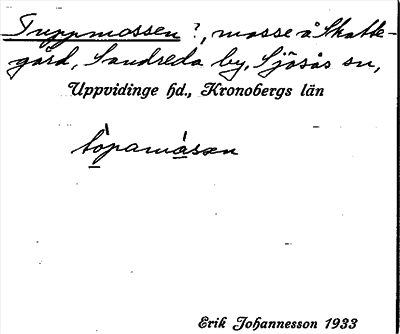 Tuppmossen ?, mosse å Skatte-
gård, Sandreda by, Sjösås sn,
Uppvidinge hd., Kronobergs län
tòpamåsæn
Erik Johannesson 1933